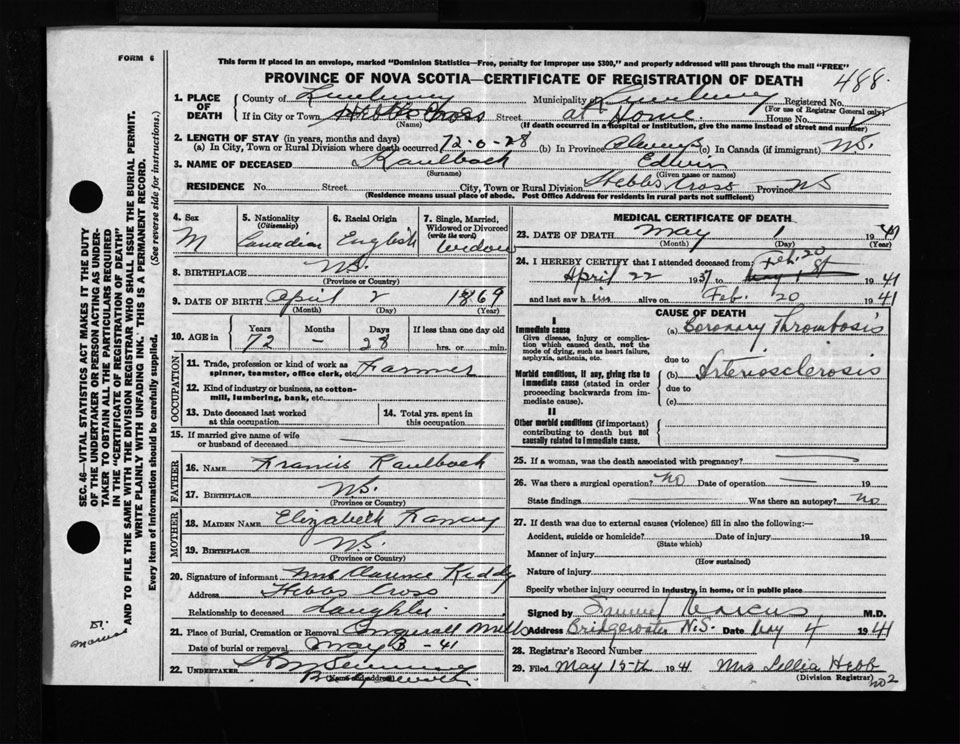 FORM 6
This form if placed in an envelope, marked "Dominion Statistics—Free, penalty for improper use $300," and properly addressed will pass through the mail "FREE"
PROVINCE OF NOVA SCOTIA—CERTIFICATE OF REGISTRATION OF DEATH
488.
1. PLACE OF DEATH
County of Lunenburg Municipality of Lunenburg Registered No.
(For use of Registrar General only)
If in City or Town Hebbs Cross Street at Home. House No.
(Name) (If death occurred in a hospital or institution, give the name instead of street and number)
2. LENGTH OF STAY (in years, months and days)
(a) In City, Town or Rural Division where death occurred 72-0-28 (b) In Province Always (c) In Canada (if immigrant) NS.
3. NAME OF DECEASED Kaulback Edwin
(Surname) (Given name or names)
RESIDENCE No. Street City, Town or Rural Division Hebbs Cross Province NS
(Residence means usual place of abode. Post Office Address for residents in rural parts not sufficient)
4. Sex
M
5. Nationality
(Citizenship)
Canadian
6. Racial Origin
English
7. Single, Married, Widowed or Divorced
(write the word)
Widow
8. BIRTHPLACE NS.
(Province or Country)
9. DATE OF BIRTH April 2 1869
(Month) (Day) (Year)
10. AGE in
Years Months Days If less than one day old
72 – 28 hrs. or min.
OCCUPATION
11. Trade, profession or kind of work as spinner, teamster, office clerk, etc. Farmer
12. Kind of industry or business, as cotton-mill, lumbering, bank, etc.
13. Date deceased last worked at this occupation
14. Total yrs. spent in this occupation
15. If married give name of wife or husband of deceased —
FATHER
16. NAME Francis Kaulback
17. BIRTHPLACE NS.
(Province or Country)
MOTHER
18. MAIDEN NAME Elizabeth
19. BIRTHPLACE NS.
(Province or Country)
20. Signature of informant Mrs Clarence Keddy
Address Hebbs Cross
Relationship to deceased daughter
21. Place of Burial, Cremation or Removal Conquerall Mills
Date of burial or removal May 3 -41
22. UNDERTAKER
(Name and address)
Bridgewater
MEDICAL CERTIFICATE OF DEATH
23. DATE OF DEATH May 1 1941
(Month) (Day) (Year)
24. I HEREBY CERTIFY that I attended deceased from:
Feb. 20
April 22 1937 to May 1st 1941
and last saw him alive on Feb. 20 1941
CAUSE OF DEATH
I
Immediate cause
Give disease, injury or complication which caused death, not the mode of dying, such as heart failure, asphyxia, asthenia, etc.
(a) Coronary Thrombosis
due to
Morbid conditions, if any, giving rise to immediate cause (stated in order proceeding backwards from immediate cause).
(b) Arteriosclerosis
due to
(c)
II
Other morbid conditions (if important) contributing to death but not causally related to immediate cause.
25. If a woman, was the death associated with pregnancy? —
26. Was there a surgical operation? no Date of operation — 19
State findings — Was there an autopsy? no
27. If death was due to external causes (violence) fill in also the following:—
Accident, suicide or homicide? Date of injury 19
(State which)
Manner of injury
(How sustained)
Nature of injury
Specify whether injury occurred in industry, in home, or in public place
Signed by Samuel Marcus M.D.
Address Bridgewater N.S. Date May 4 1941
28. Registrar's Record Number
29. Filed May 15th 1941 Mrs Lellia Hebb
(Division Registrar)
no 2
SEC. 46—VITAL STATISTICS ACT MAKES IT THE DUTY OF THE UNDERTAKER OR PERSON ACTING AS UNDERTAKER TO OBTAIN ALL THE PARTICULARS REQUIRED IN THE "CERTIFICATE OF REGISTRATION OF DEATH" AND TO FILE THE SAME WITH THE DIVISION REGISTRAR WHO SHALL ISSUE THE BURIAL PERMIT.
WRITE PLAINLY WITH UNFADING INK. THIS IS A PERMANENT RECORD.
Every item of information should be carefully supplied. (See reverse side for instructions.)
Dr.
Marcus